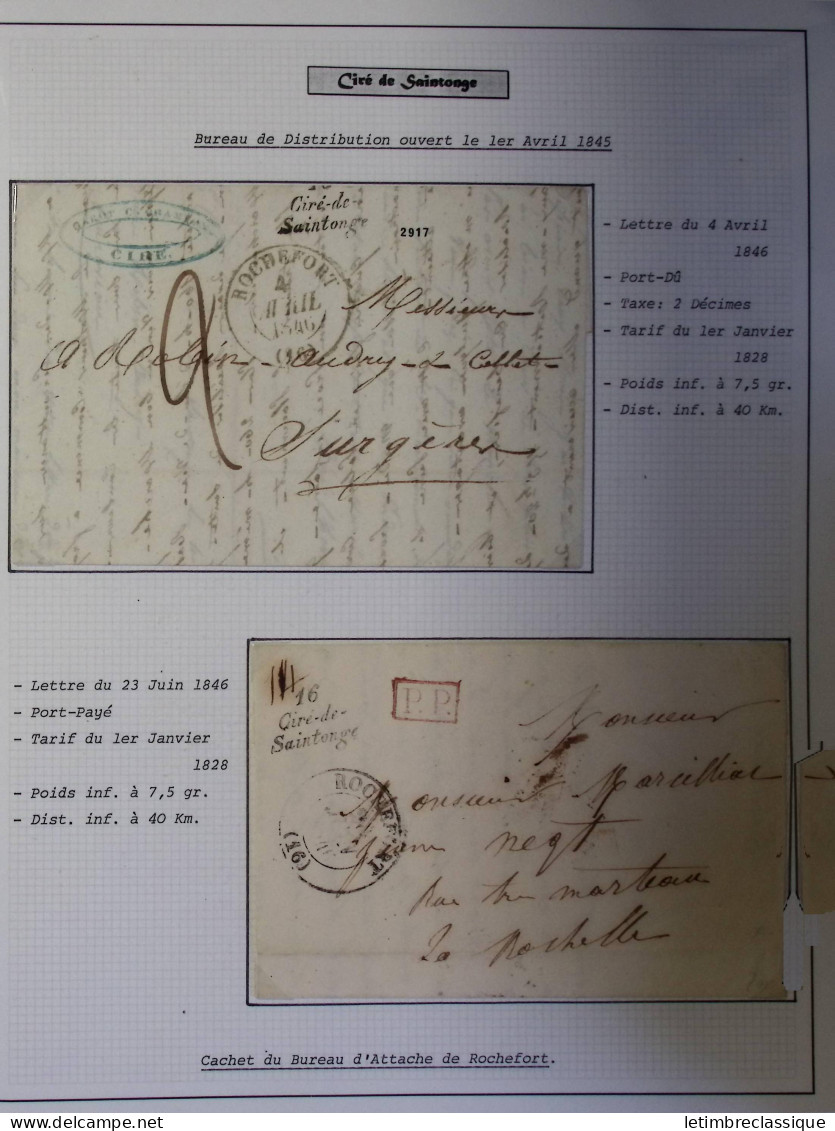 Ciré de Saintonge
Bureau de Distribution ouvert le 1er Avril 1845
CIRÉ.
Ciré-de-
Saintonge
2917
ROCHEFORT
4
AVRIL
1846
(16)
2
Messieurs
A Robin - Audry - & Collet -
Surgères
- Lettre du 4 Avril
1846
- Port-Dû
- Taxe: 2 Décimes
- Tarif du 1er Janvier
1828
- Poids inf. à 7,5 gr.
- Dist. inf. à 40 Km.
- Lettre du 23 Juin 1846
- Port-Payé
- Tarif du 1er Janvier
1828
- Poids inf. à 7,5 gr.
- Dist. inf. à 40 Km.
16
Ciré-de-
Saintonge
P.P.
ROCHEFORT
(16)
Monsieur
Monsieur Marcillac
jeune negt
Rue
La Rochelle
Cachet du Bureau d'Attache de Rochefort.
delcampe.net
letimbreclassique